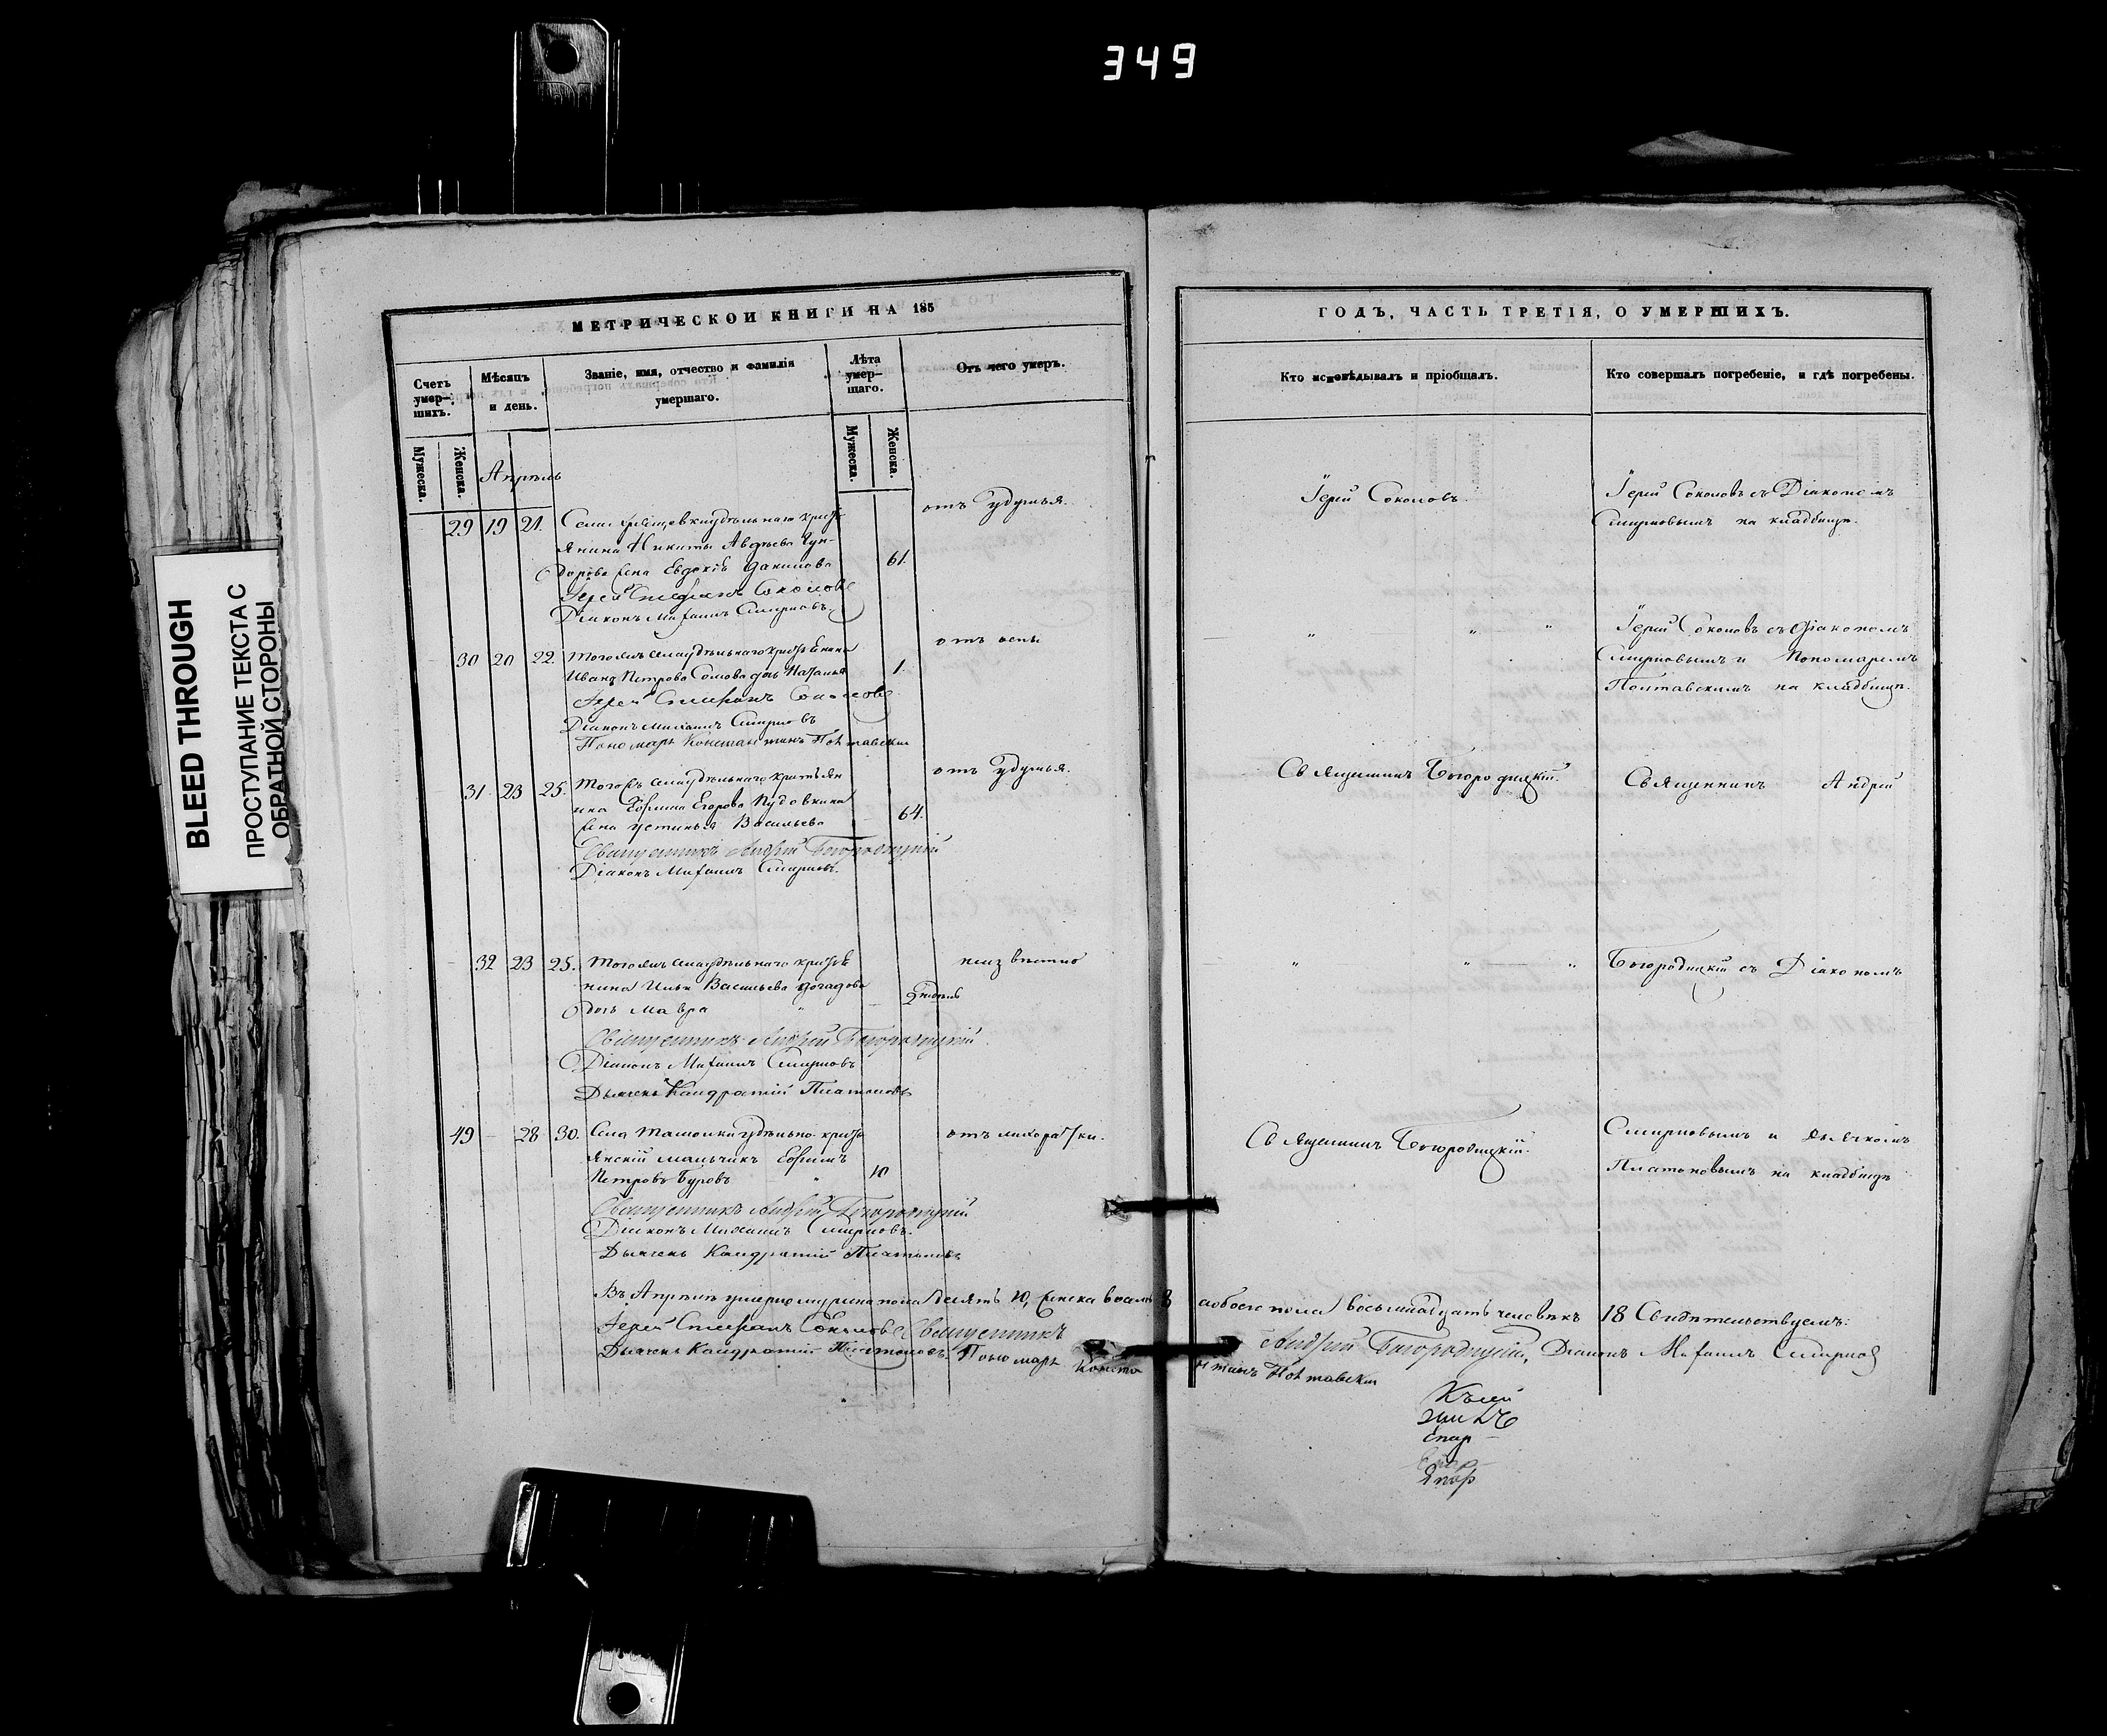 349
BLEED THROUGH
ПРОСТУПАНИЕ ТЕКСТА С
ОБРАТНОЙ СТОРОНЫ
МЕТРИЧЕСКОЙ КНИГИ НА 185
Счетъ умер-шихъ.
Мужеска.
Женска.
Мѣсяцъ и день.
Званіе, имя, отчество и фамилія умершаго.
Лѣта умер-шаго.
Мужеска.
Женска.
Отъ чего умеръ.
Апрѣль
29 19 21. удѣльнаго кресть-
янина Никиты Авдѣева
жена Евдокія
61.
отъ удушья.
Іерей Стефанъ Соколовъ
Діаконъ Михаилъ Смирновъ
30 20 22. Тогожъ села удѣльнаго крестьянина
Иванъ Петрова дочь Наталья
1.
отъ оспы
Іерей Стефанъ Соколовъ
Діаконъ Михаилъ Смирновъ
Пономарь Константинъ Полтавскій
31 23 25. Тогожъ села удѣльнаго крестьян
ина Егорова Пудовкина
жена Устинья Васильева
64.
отъ удушья.
Священникъ Андрей Богородицкій
Діаконъ Михаилъ Смирновъ.
32 23 25. Тогожъ села удѣльнаго крестья
нина Ильи Васильева
дочь Мавра
неизвѣстно
Священникъ Андрей Богородицкій
Діаконъ Михаилъ Смирновъ
Дьячекъ Кандратій Платоновъ
49 28 30. Села удѣльно кресть
янскій мальчикъ Ефимъ
Петровъ Буровъ
10
отъ лихоратки.
Священникъ Андрей Богородицкій
Діаконъ Михаилъ Смирновъ.
Дьячекъ Кандратій Платоновъ
Въ Апрѣлѣ умерло мужеска пола десять 10, женска восемь 8
Іерей Стефанъ Соколовъ Священникъ
Дьячекъ Кандратій Платоновъ. Пономарь Конста
ГОДЪ, ЧАСТЬ ТРЕТІЯ, О УМЕРШИХЪ.
Кто исповѣдывалъ и пріобщалъ.
Кто совершалъ погребеніе, и гдѣ погребены.
Іерей Соколовъ.
Іерей Соколовъ съ Діакономъ
Смирновымъ на кладбищѣ.
" " "
Іерей Соколовъ съ Діакономъ
Смирновымъ и Пономаремъ
Полтавскимъ на кладбищѣ.
Священникъ Богородицкій.
Священникъ Андрей
" " "
Богородицкій съ Діакономъ
Священникъ Богородицкій.
Смирновымъ и дьячкомъ
Платоновымъ на кладбищѣ
а обоего пола восьмнадцать человѣкъ 18 Свидѣтельствуемъ:
Андрей Богородицкій, Діаконъ Михаилъ Смирновъ
нтинъ Полтавскій